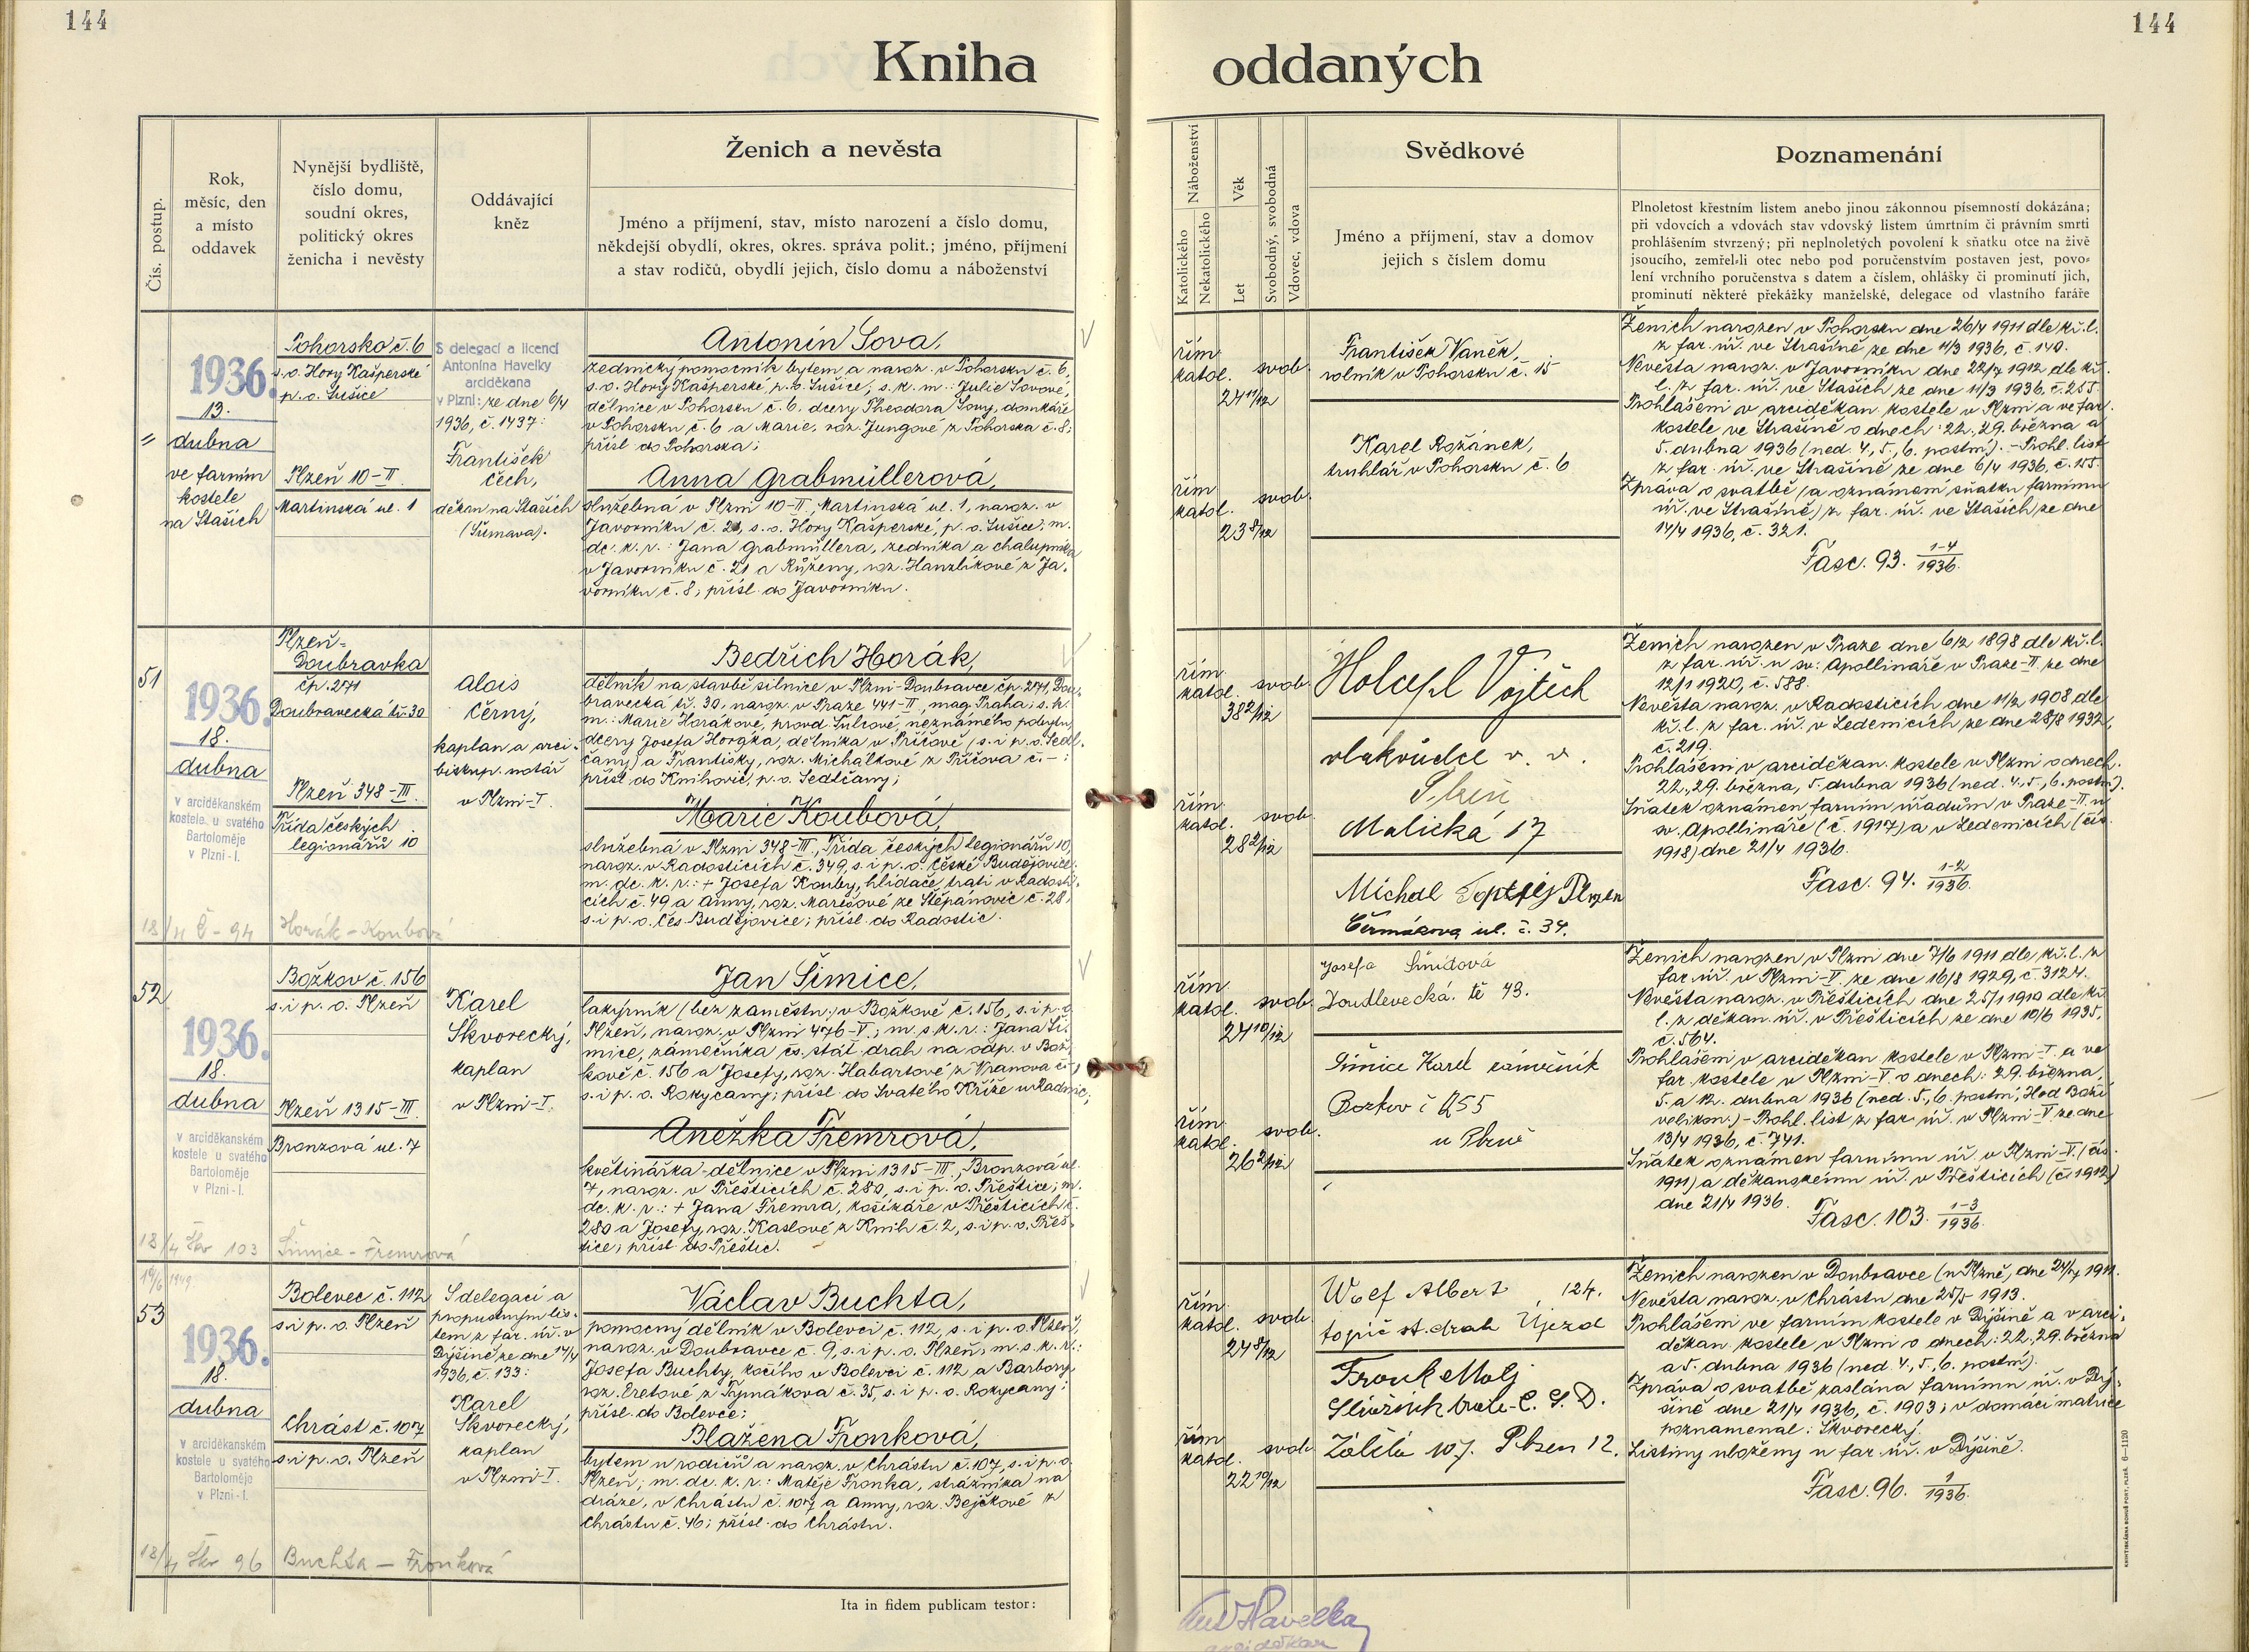 144
144
Kniha oddaných
Čís. postup.
Rok,
měsíc, den
a místo
oddavek
Nynější bydliště,
číslo domu,
soudní okres,
politický okres
ženicha i nevěsty
Oddávající
kněz
Ženich a nevěsta
Jméno a příjmení, stav, místo narození a číslo domu,
někdejší obydlí, okres, okres. správa polit.; jméno, příjmení
a stav rodičů, obydlí jejich, číslo domu a náboženství
Náboženství
Katolického
Nekatolického
Věk
Let
Svobodný, svobodná
Vdovec, vdova
Svědkové
Jméno a příjmení, stav a domov
jejich s číslem domu
Poznamenání
Plnoletost křestním listem anebo jinou zákonnou písemností dokázána;
při vdovcích a vdovách stav vdovský listem úmrtním či právním smrti
prohlášením stvrzený; při neplnoletých povolení k sňatku otce na živě
jsoucího, zemřel-li otec nebo pod poručenstvím postaven jest, povo-
lení vrchního poručenstva s datem a číslem, ohlášky či prominutí jich,
prominutí některé překážky manželské, delegace od vlastního faráře
"
1936.
13.
dubna
ve farním
kostele
na Staších
Pohorsko č. 6
s.o. Hory Kašperské
p.o. Sušice
Plzeň 10-II
Martinská ul. 1
S delegací a licencí
Antonína Havelky
arciděkana
v Plzni: ze dne 6/4
1936, č. 1437:
František
Čech,
děkan na Staších
(Šumava).
Antonín Sova,
zednický pomocník bytem a naroz. v Pohorsku č. 6,
s.o. Hory Kašperské, p.o. Sušice; s. k. m.: Julie Sovové,
dělnice v Pohorsku č. 6, dcery Theodora Sovy, domkáře
v Pohorsku č. 6 a Marie, roz. Jungové z Pohorska č. 8;
přísl. do Pohorska;
Anna Grabmüllerová,
služebná v Plzni 10-II, Martinská ul. 1, naroz. v
Javorníku č. 21, s.o. Hory Kašperské, p.o. Sušice; m.
dc. k. r.: Jana Grabmüllera, zedníka a chalupníka
v Javorníku č. 21 a Růženy, roz. Hanzlíkové z Ja-
vorníku č. 8; přísl. do Javorníku.
řím.
katol.
svob.
24 11/12
řím.
katol.
svob.
23 8/12
František Vaněk,
rolník v Pohorsku č. 15
Karel Rožánek,
truhlář v Pohorsku č. 6
Ženich narozen v Pohorsku dne 26/4 1911 dle kř. l.
z far. úř. ve Strašíně ze dne 11/3 1936, č. 140.
Nevěsta naroz. v Javorníku dne 22/7 1912 dle kř.
l. z far. úř. ve Staších ze dne 11/3 1936, č. 255.
Prohlášeni v arciděkan. kostele v Plzni a ve far.
kostele ve Strašíně o dnech: 22., 29. března a
5. dubna 1936 (ned. 4., 5., 6. postní). - Prohl. list
z far. úř. ve Strašíně ze dne 6/4 1936, č. 155.
Zpráva o svatbě (a oznámení sňatku farnímu
úř. ve Strašíně) z far. úř. ve Staších ze dne
14/4 1936, č. 321.
Fasc. 93. 1-4/1936.
51
1936.
18.
dubna
v arciděkanském
kostele u svatého
Bartoloměje
v Plzni-I.
Plzeň-
Doubravka
čp. 271
Doubravecká tř. 30
Plzeň 348-III.
Třída českých
legionářů 10
Alois
Černý,
kaplan a arci-
biskup. notář
v Plzni-I.
Bedřich Horák,
dělník na stavbě silnice v Plzni-Doubravce čp. 271, Dou-
bravecká tř. 30, naroz. v Praze 441-II, mag. Praha; s. k.
m.: Marie Horákové, provd. Šulcové, neznámého pobytu,
dcery Josefa Horáka, dělníka v Příčově, (s. i p. o. Sedl-
čany) a Františky, roz. Michálkové z Příčova č. -;
přísl. do Knihovic, p. o. Sedlčany;
Marie Koubová,
služebná v Plzni 348-III, Třída českých legionářů 10,
naroz. v Radosticích č. 349, s. i p. o. České Budějovice;
m. dc. k. r.: + Josefa Kouby, hlídače trati v Radosti-
cích č. 49 a Anny, roz. Marešové ze Štěpánovic č. 28,
s. i p. o. Čes. Budějovice; přísl. do Radostic.
18/4 Č - 94 Horák - Koubová
řím.
katol.
svob.
38 2/12
řím.
katol.
svob.
28 2/12
Vojtěch
vlakvůdce v. v.
Plzeň
Malická 17
Michal Plzen
Čermákova ul. č. 34.
Ženich narozen v Praze dne 6/2 1898 dle kř. l.
z far. úř. u sv. Apollináře v Praze-II. ze dne
12/1 1920, č. 588.
Nevěsta naroz. v Radosticích dne 11/2 1908 dle
kř. l. z far. úř. v Ledenicích ze dne 28/8 1932,
č. 219.
Prohlášeni v arciděkan. kostele v Plzni o dnech:
22., 29. března, 5. dubna 1936 (ned. 4., 5., 6. postní).
Sňatek oznámen farním úřadům v Praze-II. u
sv. Apollináře (č. 1917) a v Ledenicích (čís.
1918) dne 21/4 1936.
Fasc. 94. 1-2/1936.
52
1936.
18.
dubna
v arciděkanském
kostele u svatého
Bartoloměje
v Plzni-I.
Božkov č. 156
s. i p. o. Plzeň
Plzeň 1315-III.
Bronzová ul. 7
Karel
Škvorecký,
kaplan
v Plzni-I.
Jan Šimice,
lakýrník (bez zaměstn.) v Božkově č. 156, s. i p. o.
Plzeň, naroz. v Plzni 476-V; m. s. k. r.: Jana Ši-
mice, zámečníka čs. stát. drah na odp. v Bož-
kově č. 156 a Josefy, roz. Habartové z Vranova č. 1,
s. i p. o. Rokycany; přísl. do Svatého Kříže u Radnic;
Anežka Fremrová,
květinářka-dělnice v Plzni 1315-III, Bronzová ul.
7, naroz. v Přešticích č. 280, s. i p. o. Přeštice; m.
dc. k. r.: + Jana Fremra, košíkáře v Přešticích č.
280 a Josefy, roz. Kaslové z Knih č. 2, s. i p. o. Přeš-
tice; přísl. do Přeštic.
18/4 Škv 103 Šimice - Fremrová
řím.
katol.
svob.
24 10/12
řím.
katol.
svob.
26 2/12
Josefa Šmídová
Doudlevecká tř 43.
Šimice Karel zámečník
Bozkov č 155
u Plzně
Ženich narozen v Plzni dne 7/6 1911 dle kř. l. z
far. úř. v Plzni-V. ze dne 16/8 1929, č. 3124.
Nevěsta naroz. v Přešticích dne 25/1 1910 dle kř.
l. z děkan. úř. v Přešticích ze dne 10/6 1935,
č. 564.
Prohlášeni v arciděkan. kostele v Plzni-I. a ve
far. kostele v Plzni-V. o dnech: 29. března,
5. a 12. dubna 1936 (ned. 5., 6. postní, Hod Boží
velikon.) - Prohl. list z far. úř. v Plzni-V. ze dne
13/4 1936, č. 741.
Sňatek oznámen farnímu úř. v Plzni-V. (čís.
1911) a děkanskému úř. v Přešticích (č. 1912)
dne 21/4 1936.
Fasc. 103. 1-3/1936.
19/6 1949
53
1936.
18.
dubna
v arciděkanském
kostele u svatého
Bartoloměje
v Plzni-I.
Bolevec č. 112
s. i p. o. Plzeň
Chrást č. 107
s. i p. o. Plzeň
S delegací a
propustným lis-
tem z far. úř. v
Dýšině ze dne 14/4
1936, č. 133:
Karel
Škvorecký,
kaplan
v Plzni-I.
Václav Buchta,
pomocný dělník v Bolevci č. 112, s. i p. o. Plzeň,
naroz. v Doubravce č. 9, s. i p. o. Plzeň; m. s. k. r.:
Josefa Buchty, kočího v Bolevci č. 112 a Barbory,
roz. Eretové z Tymákova č. 35, s. i p. o. Rokycany;
přísl. do Bolevce;
Blažena Fronková,
bytem u rodičů a naroz. v Chrástu č. 107, s. i p. o.
Plzeň; m. dc. k. r.: Matěje Fronka, strážníka na
dráze, v Chrástu č. 107 a Anny, roz. Bejčkové z
Chrástu č. 46; přísl. do Chrástu.
18/4 Škv 96 Buchta - Fronková
řím.
katol.
svob.
24 8/12
řím.
katol.
svob.
22 10/12
Albert 124.
topič st. drah Újezd
Fronk Matj
trate Č. S. D.
107. Plzen 12.
Ženich narozen v Doubravce (u Plzně, dne 24/7 1911.
Nevěsta naroz. v Chrástu dne 25/5 1913.
Prohlášeni ve farním kostele v Dýšině a v arci-
děkan. kostele v Plzni o dnech: 22., 29. března
a 5. dubna 1936 (ned. 4., 5., 6. postní).
Zpráva o svatbě zaslána farnímu úř. v Dý-
šině dne 21/4 1936, č. 1903; v domácí matrice
poznamenal: Škvorecký.
Listiny uloženy u far. úř. v Dýšině.
Fasc. 96. 1/1936.
Ita in fidem publicam testor:
Ant Havelka,
arciděkan
KNIHTISKÁRNA BOHUŠ PORT, PLZEŇ. 6-1120